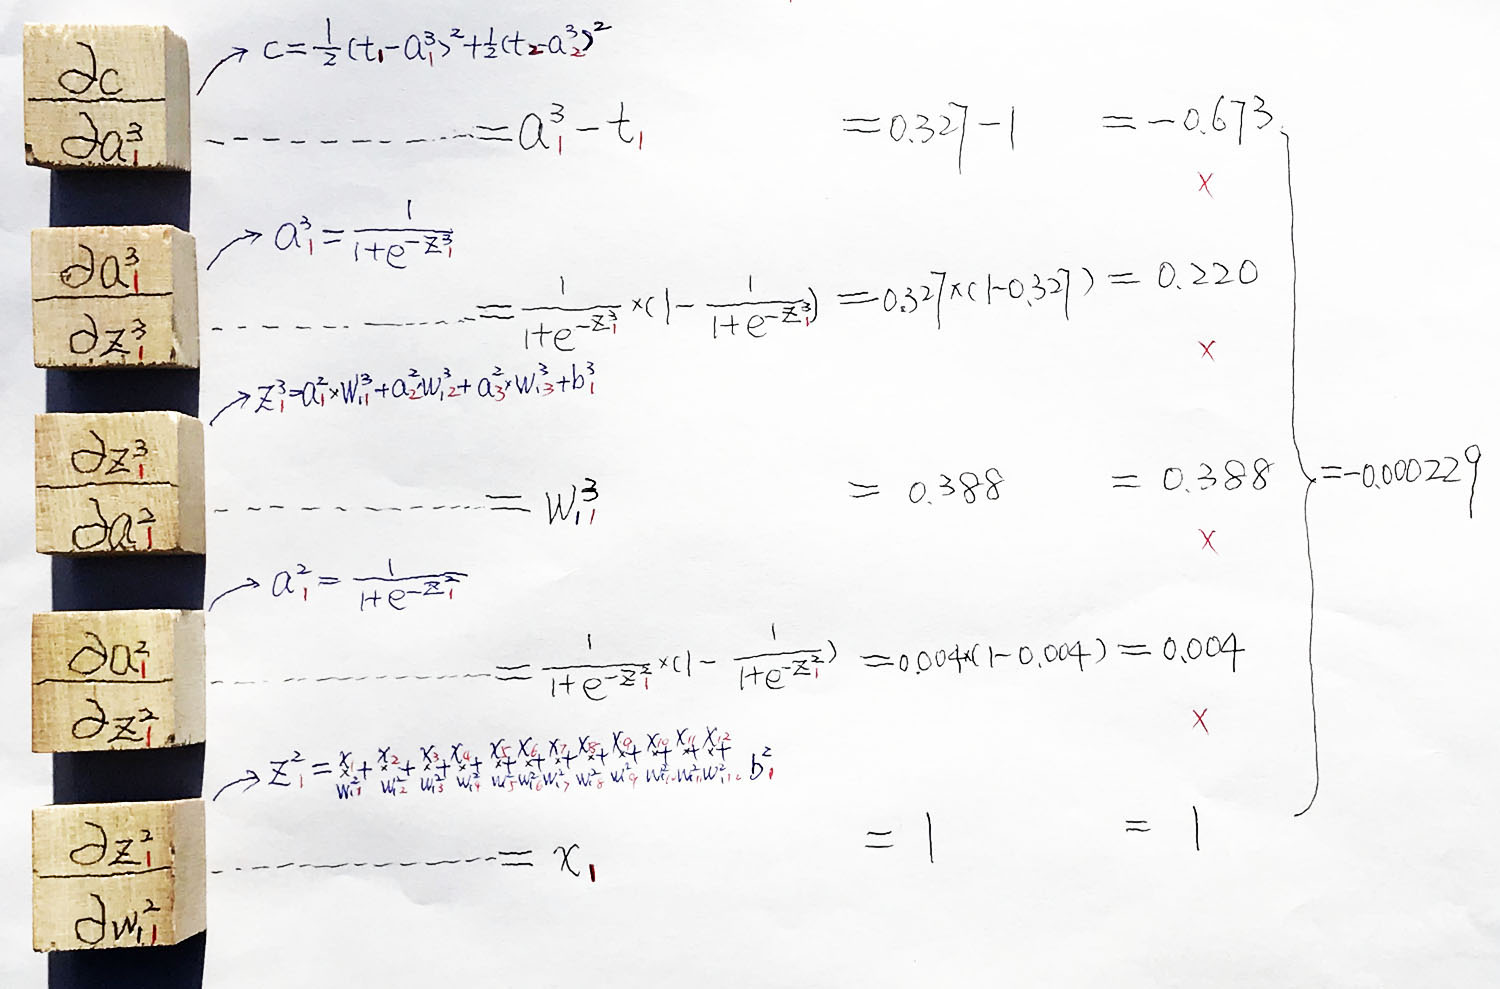 ∂c/∂a₁³
→ c = 1/2 (t₁ - a₁³)² + 1/2 (t₂ - a₂³)²
= a₁³ - t₁ = 0.327 - 1 = -0.673
×
∂a₁³/∂z₁³
→ a₁³ = 1/(1+e^(-z₁³))
= 1/(1+e^(-z₁³)) × (1 - 1/(1+e^(-z₁³))) = 0.327 × (1-0.327) = 0.220
×
→ z₁³ = a₁² × w₁₁³ + a₂² w₁₂³ + a₃² × w₁₃³ + b₁³
∂z₁³/∂a₁²
= w₁₁³ = 0.388 = 0.388
= -0.000229
×
→ a₁² = 1/(1+e^(-z₁²))
∂a₁²/∂z₁²
= 1/(1+e^(-z₁²)) × (1 - 1/(1+e^(-z₁²))) = 0.004 × (1-0.004) = 0.004
×
→ z₁² = x₁ × w₁₁² + x₂ × w₁₂² + x₃ × w₁₃² + x₄ × w₁₄² + x₅ × w₁₅² + x₆ × w₁₆² + x₇ × w₁₇² + x₈ × w₁₈² + x₉ × w₁₉² + x₁₀ × w₁² + x₁₁ × w₁₁₁² + x₁₂ × w₁₁₂² + b₁²
∂z₁²/∂w₁₁²
= x₁ = 1 = 1